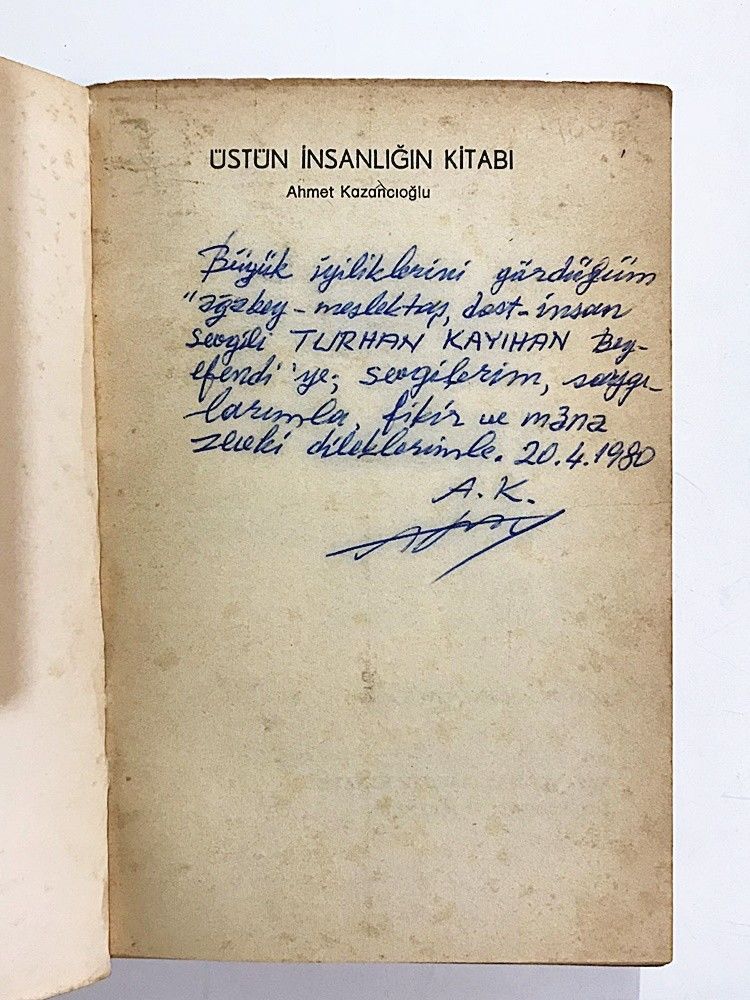 ÜSTÜN İNSANLIĞIN KİTABI
Ahmet Kazancıoğlu
Büyük iyiliklerini gördüğüm
"ağabey - meslektaş, dost - insan
Sevgili TURHAN KAYIHAN Bey-
efendi'ye; sevgilerim, saygı-
larımla, fikir ve mâna
zevki dileklerimle. 20.4.1980
A.K.